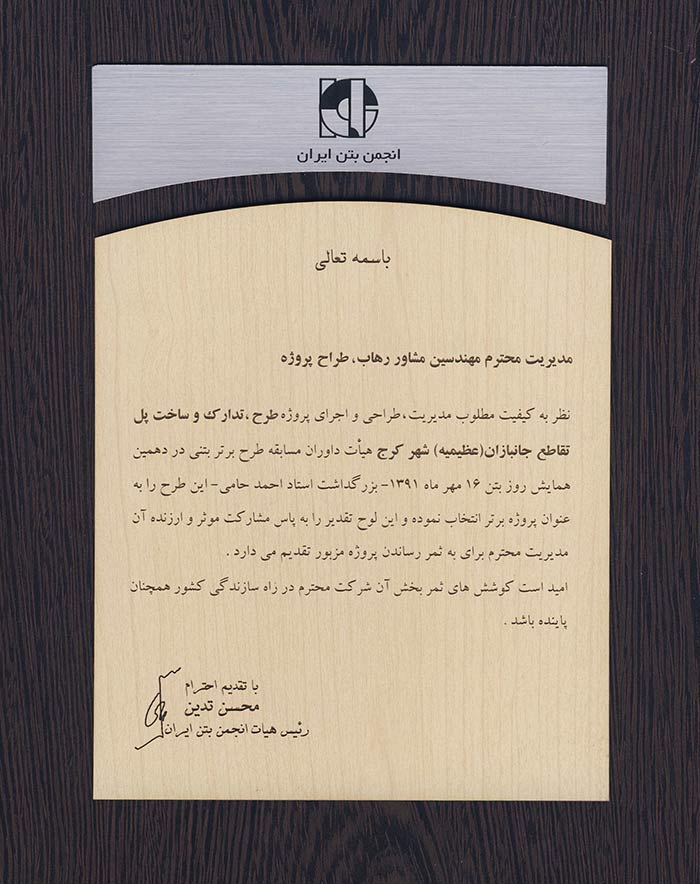 انجمن بتن ایران
باسمه تعالی
مدیریت محترم مهندسین مشاور رهاب، طراح پروژه
نظر به کیفیت مطلوب مدیریت، طراحی و اجرای پروژه طرح، تدارک و ساخت پل
تقاطع جانبازان(عظیمیه) شهر کرج هیأت داوران مسابقه طرح برتر بتنی در دهمین
همایش روز بتن ۱۶ مهر ماه ۱۳۹۱- بزرگداشت استاد احمد حامی- این طرح را به
عنوان پروژه برتر انتخاب نموده و این لوح تقدیر را به پاس مشارکت موثر و ارزنده آن
مدیریت محترم برای به ثمر رساندن پروژه مزبور تقدیم می دارد .
امید است کوشش های ثمر بخش آن شرکت محترم در راه سازندگی کشور همچنان
پاینده باشد .
با تقدیم احترام
محسن تدین
رئیس هیات انجمن بتن ایران